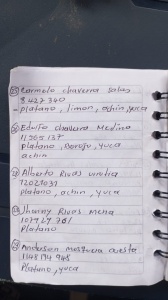 Carmelo chaverra salas
8427340
- Platano, limon, achin, yuca
Edwito chaverra Medina
11965137
Platano, Borojo, yuca
achin
Alberto Rivas urrutia
12021032
Platano, achin, yuca
Jhanny Rivas mena
107727761
Platano
Anderson mosquera cuesta
1148194948
Platano, yuca